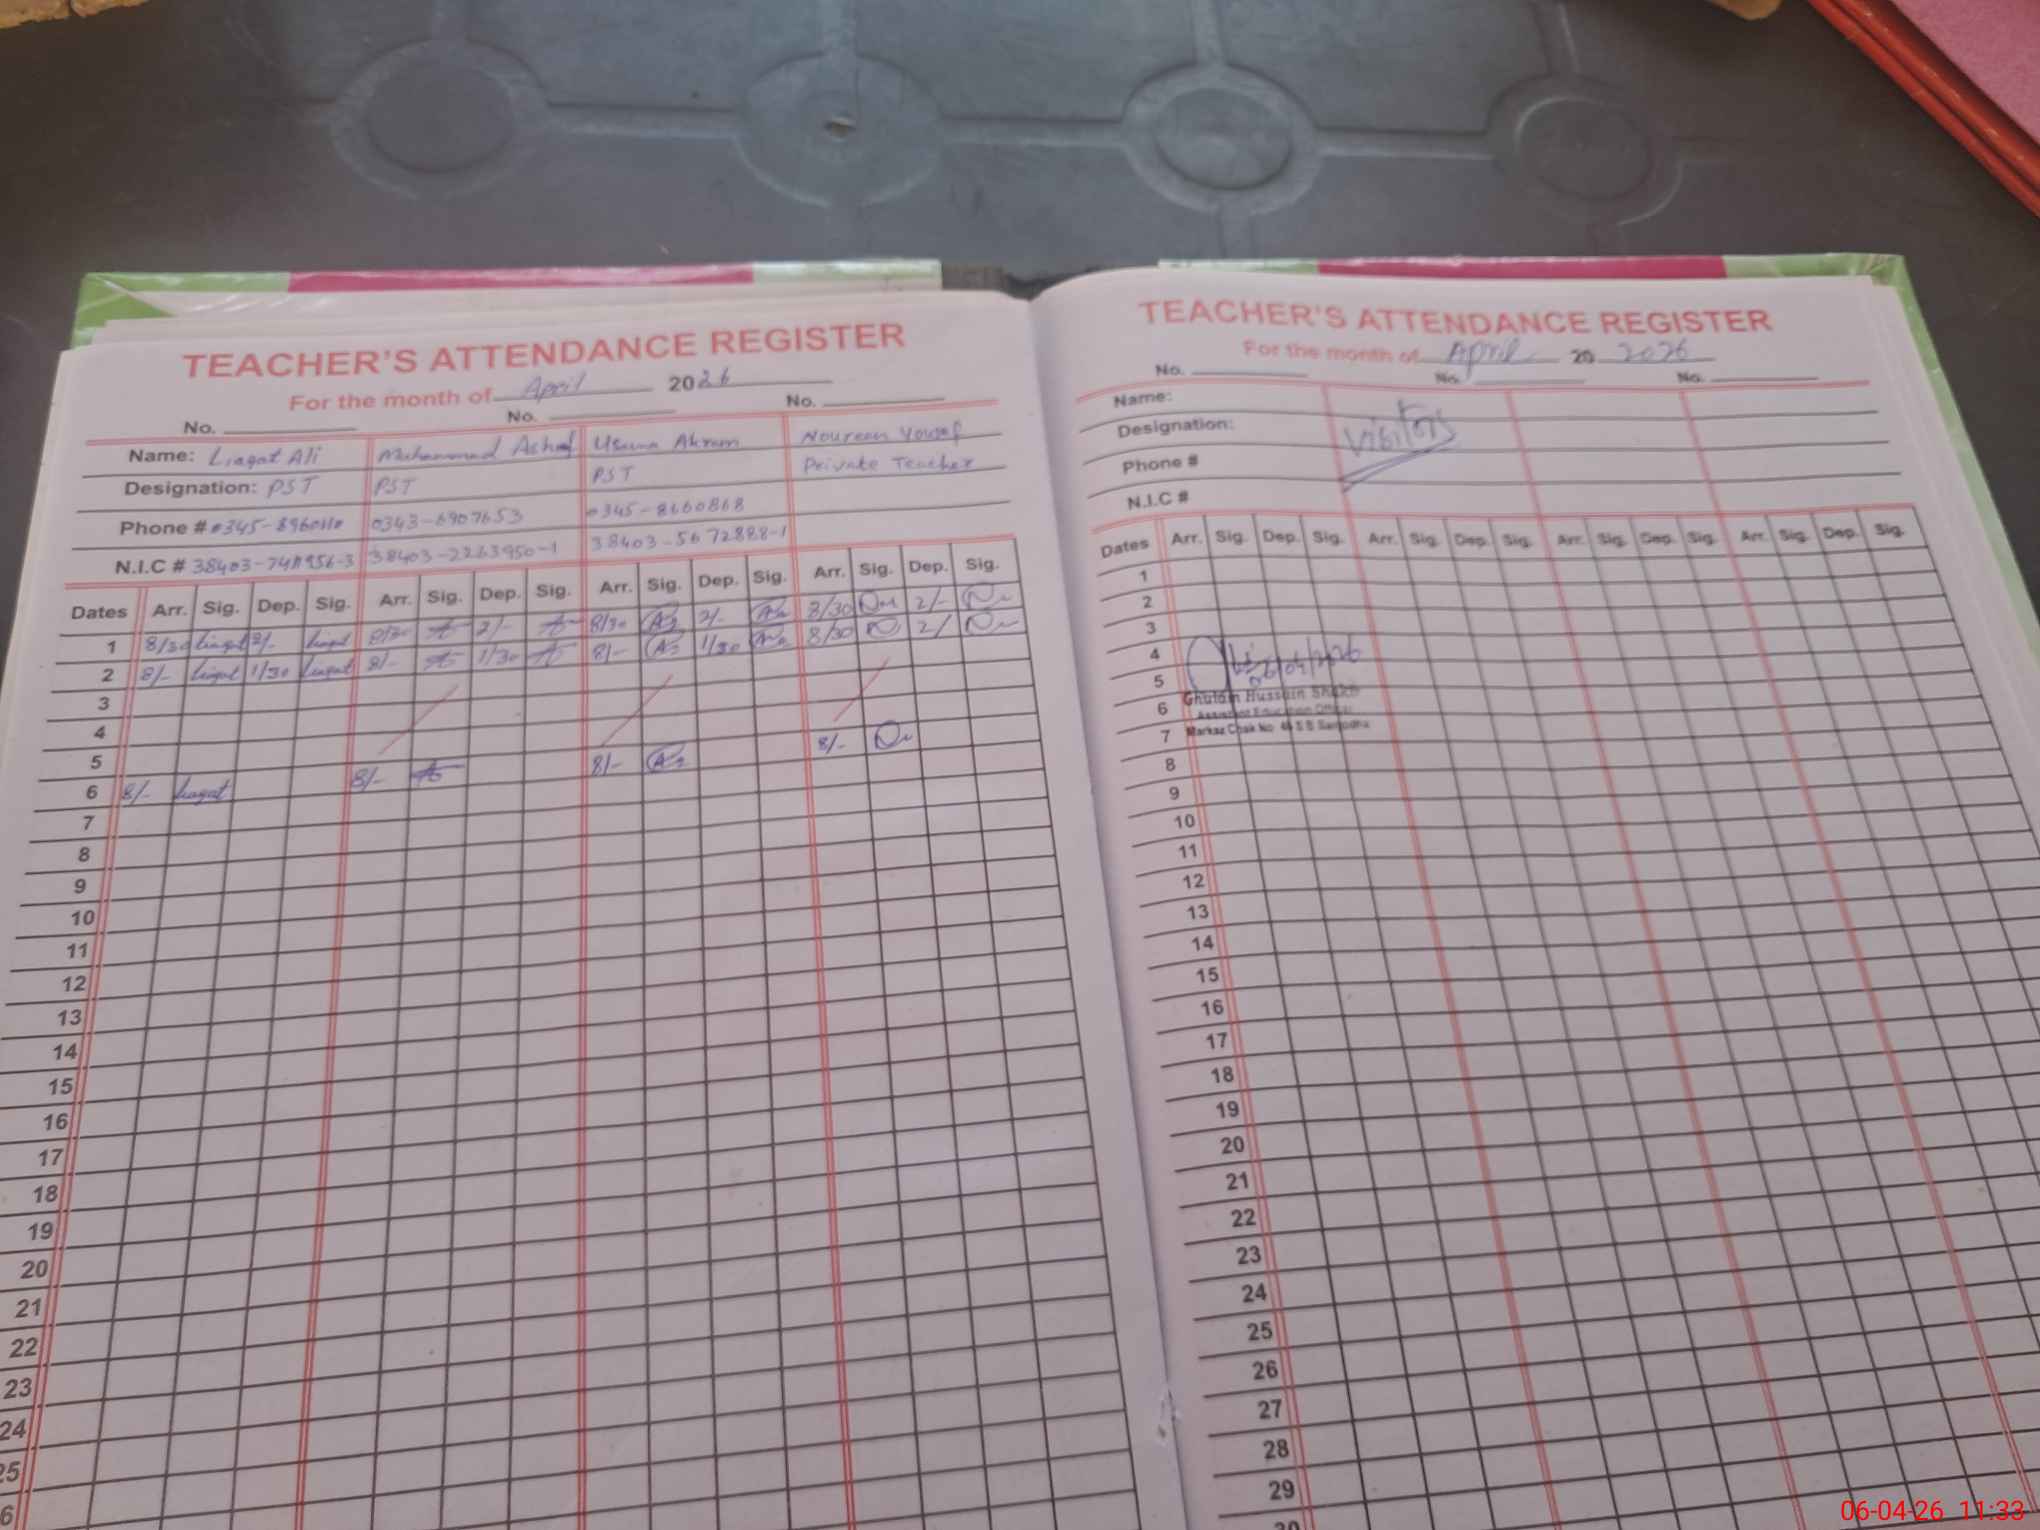 TEACHER'S ATTENDANCE REGISTER
For the month of April 2026
No. No. No.
Name: Liaqat Ali Muhammad Ashraf Usama Akram Noureen Yousaf
Designation: PST PST PST Private Teacher
Phone # 0343-6907653 0345-8660868
N.I.C # 38403-2263950-1 38403-5672888-1
Dates Arr. Sig. Dep. Sig. Arr. Sig. Dep. Sig. Arr. Sig. Dep. Sig. Arr. Sig. Dep. Sig.
1 8/30 liaqat 2/- liaqat 8/30 2/- 8/30 2/- 8/30 2/-
2 8/- liaqat 1/30 liaqat 8/- 1/30 8/- 1/30 8/30 2/
3
4
5
6 8/- liaqat 8/- 8/- 8/-
7
8
9
10
11
12
13
14
15
16
17
18
19
20
21
22
23
24
25
6
TEACHER'S ATTENDANCE REGISTER
For the month of April 20 2026
No. No. No.
Name:
Designation: Visitors
Phone #
N.I.C #
Dates Arr. Sig. Dep. Sig. Arr. Sig. Dep. Sig. Arr. Sig. Dep. Sig. Arr. Sig. Dep. Sig.
1
2
3
4 06/04/2026
5
6 Ghulam Hussain
Assistant Education Officer
7 Markaz Chak No
8
9
10
11
12
13
14
15
16
17
18
19
20
21
22
23
24
25
26
27
28
29
30
06-04-26 11:33